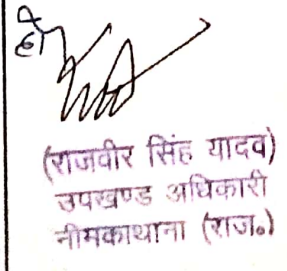 हो
(राजवीर सिंह यादव)
उपखण्ड अधिकारी
नीमकाथाना (राज०)